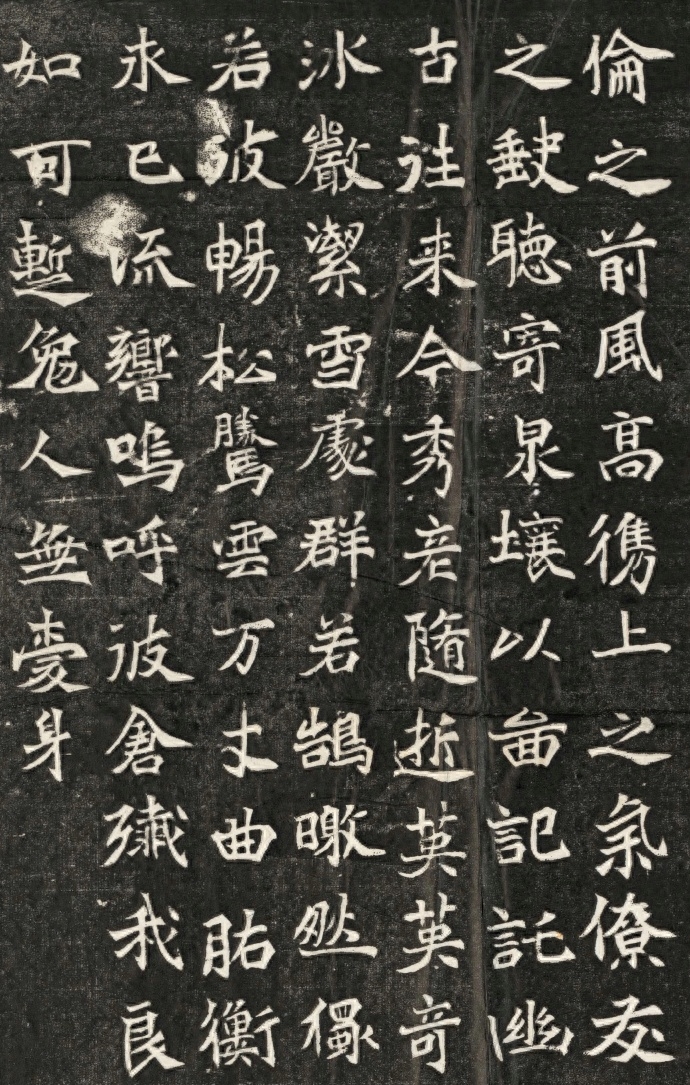 倫之前風高儁上之氣僚友
之缺聽寄泉壤以啚記託幽
古往来今秀老隨逝英英奇
氷嚴潔雪處群若鵠曒然獨
若彼暢松騰雲万丈曲肱衡
永已流響嗚呼彼倉殲我良
如可蹔免人無憂身